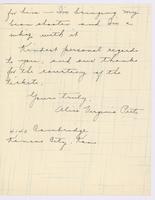 for him – I'm bringing my
and I'm a
with it
Kindest personal regards
to you, and many thanks
for the courtesy of the
tickets.
Yours truly,
Alice Virginia
4140 Cambridge
Kansas City, Kans